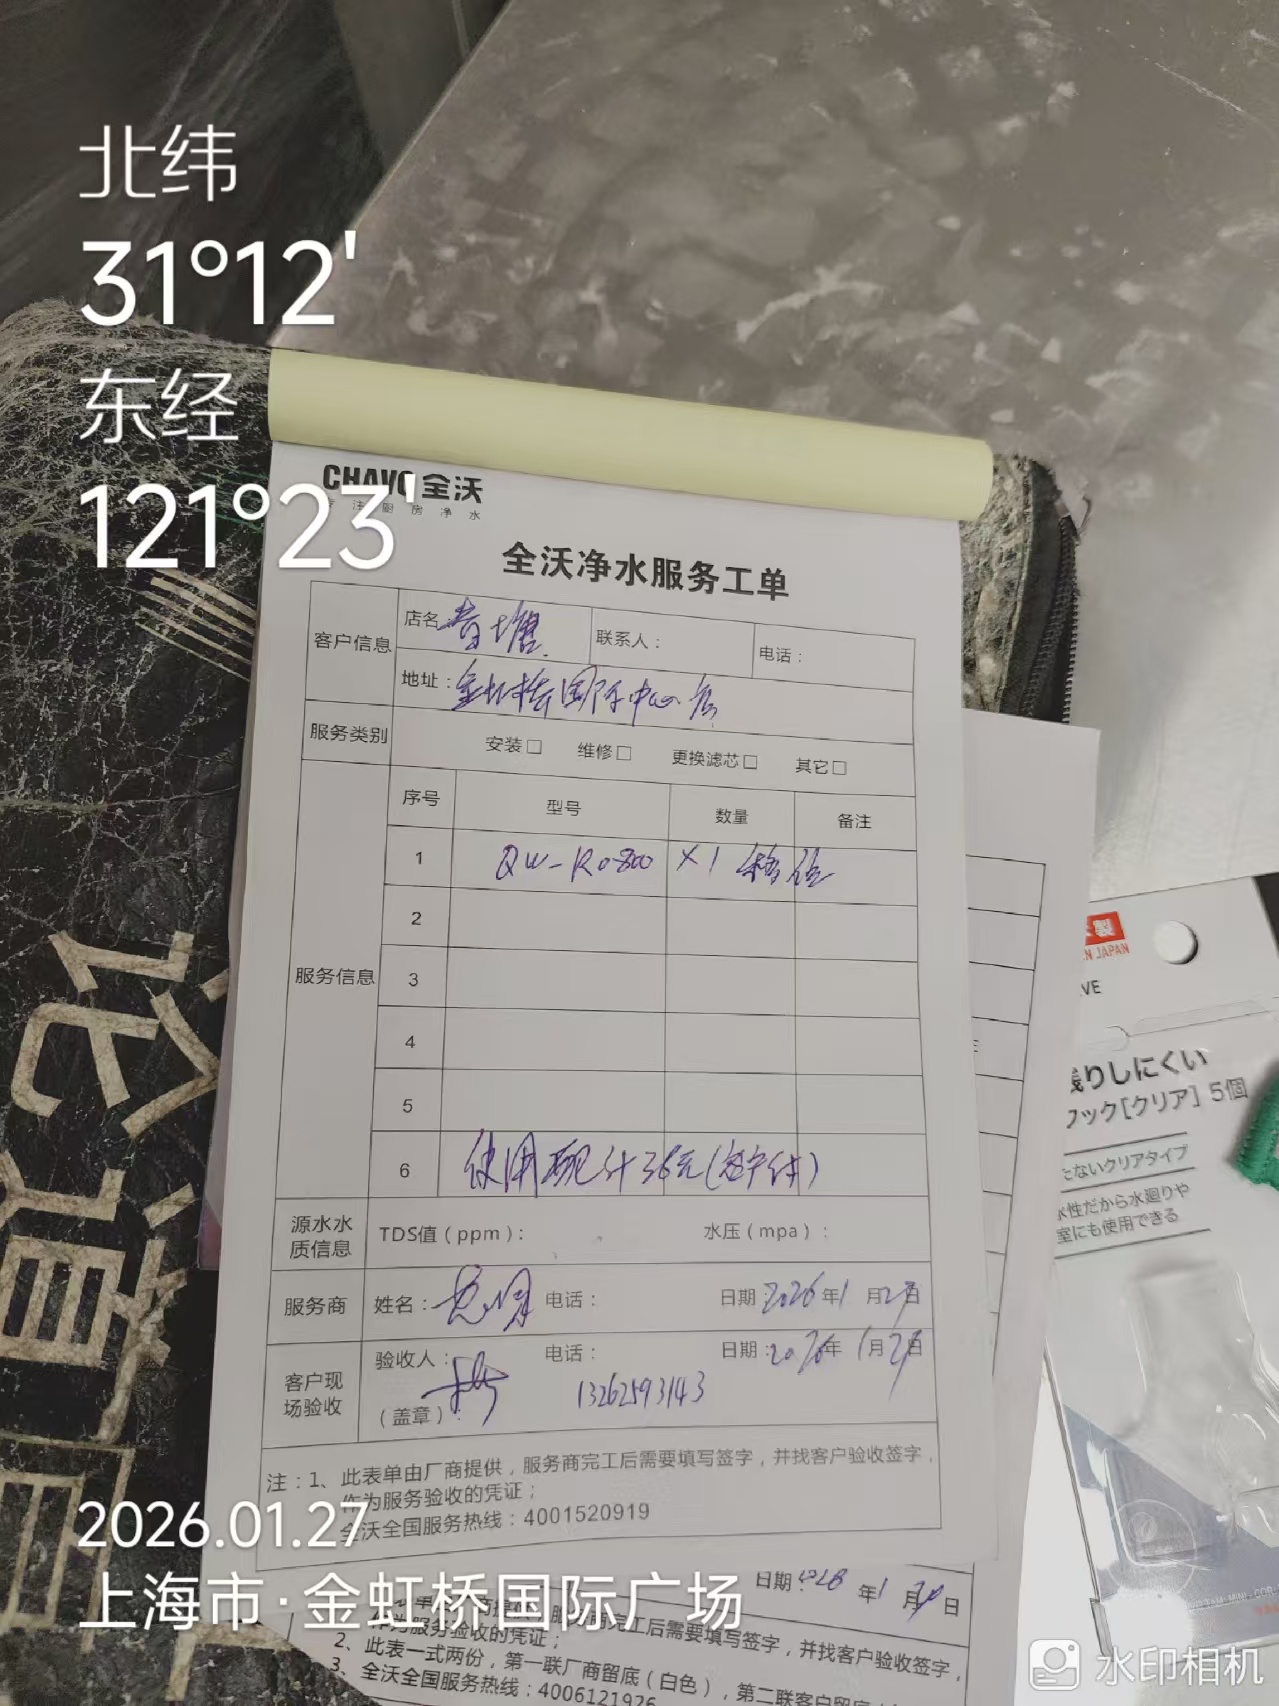 北纬
31°12'
东经
121°23'
CHAVO全沃
注 厨 房 净 水
全沃净水服务工单
客户信息
店名
联系人：
电话：
地址：金虹桥国际中心店
服务类别
安装□ 维修□ 更换滤芯□ 其它□
服务信息
序号 型号 数量 备注
1 QW-RO-800 ×1 检修
2
3
4
5
6 使用配件36元(
源水水质信息
TDS值（ppm）：
水压（mpa）：
服务商
姓名：
电话：
日期：2026年1月27日
客户现场验收
验收人：
电话：
日期：2026年1月27日
（盖章）：
13262593143
注：1、此表单由厂商提供，服务商完工后需要填写签字，并找客户验收签字，
作为服务验收的凭证；
全沃全国服务热线：4001520919
2026.01.27
上海市·金虹桥国际广场
日期： 年1月 日
服务商完工后需要填写签字，并找客户验收签字，
作为服务验收的凭证；
2、此表一式两份，第一联厂商留底（白色），第二联客户留底
3、全沃全国服务热线：4006121926
水印相机
製
IN JAPAN
残りにくい
フック[クリア] 5個
クリアタイプ
水性だから水廻りや
室にも使用できる
道